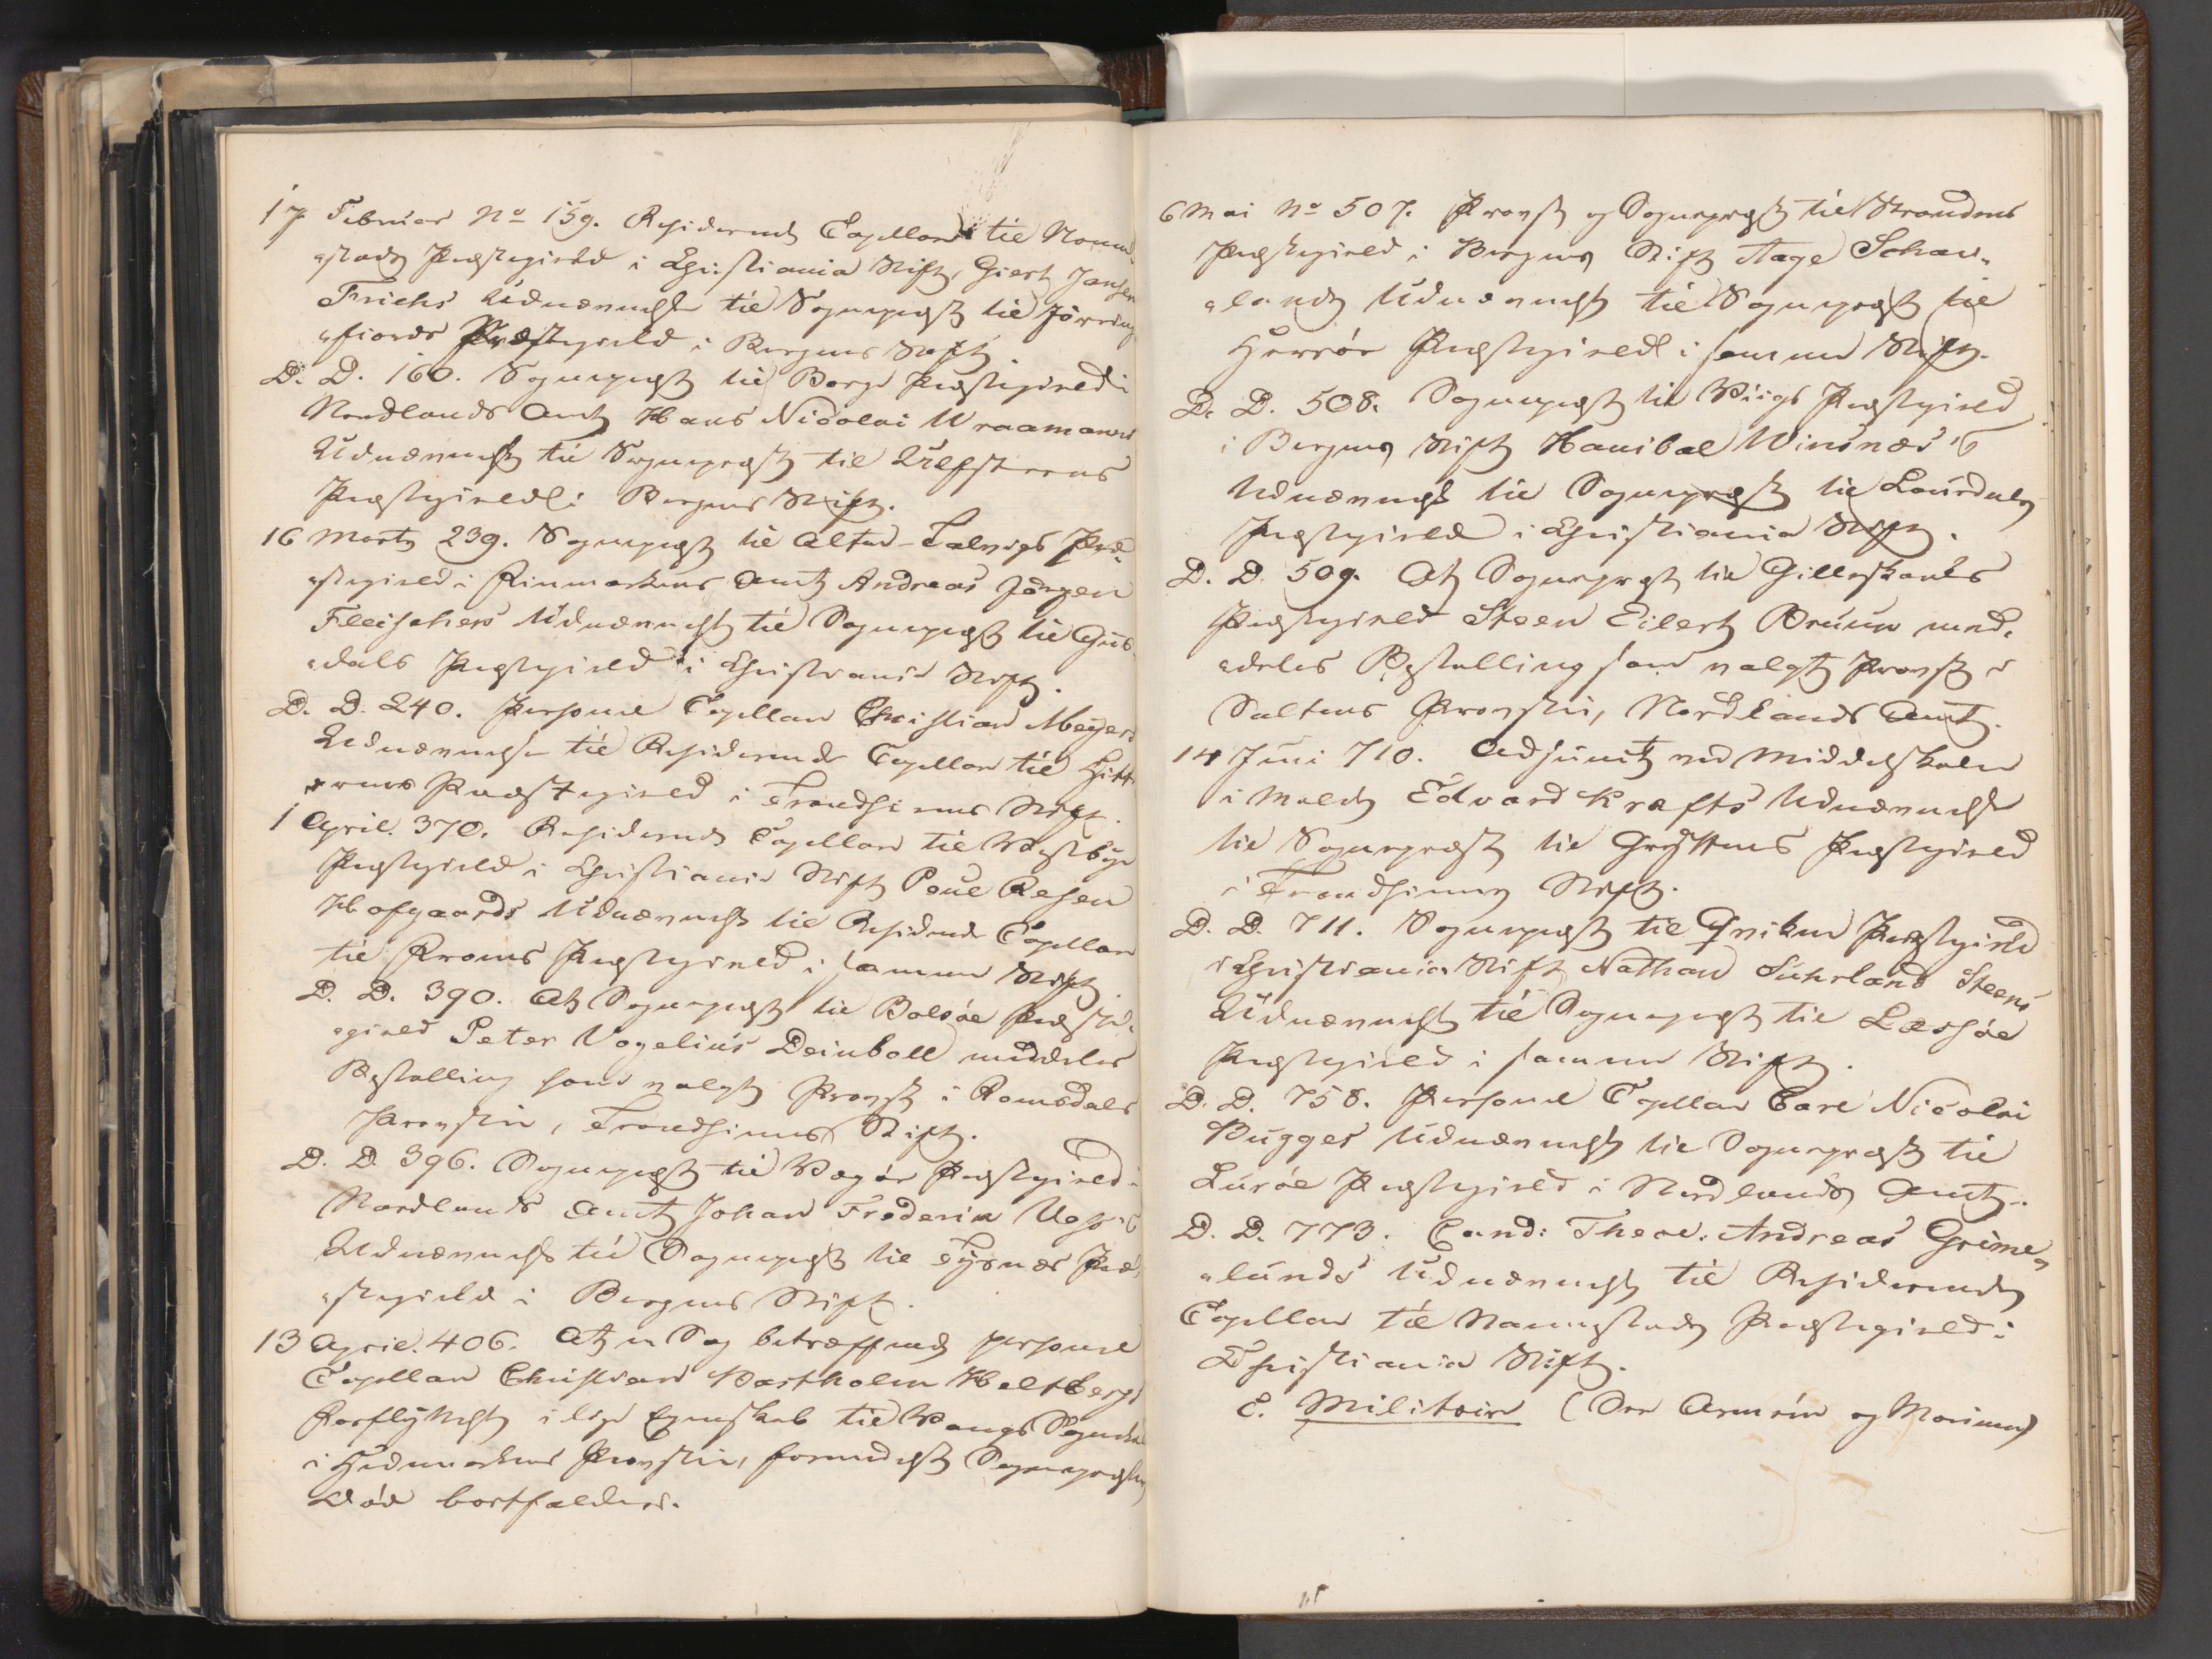 17 Februar No 159. Residerende Capellan til Nann-
„stads Præstegield i Christiania Stift, Giert Jansen
Frichs Udnævnelse til Sognepræst til Jörring-
„fiords Præstegield i Bergens Stift.
D. D. 160. Sognepræst til Borge Præstegield i
Nordlands Amt Hans Nicolai Wraamanns
Udnævnelse til Sognepræst til Ulfsteens
Præstegield i Bergens Stift.
16 Marts 239. Sognepræst til Alten-Talvigs Præ-
„stegield i Finmarkens Amt Andreas Jörgen
Fleischers Udnævnelse til Sognepræst til Gus-
„dals Præstegield i Christiania Stift.
D. D. 240. Personel Capellan Christian Meyers
Udnævnelse til Residerende Capellan til Hitt-
erens Præstegield i Trondhjems Stift.
1 April. 370. Residerende Capellan til Vestbye
Præstegield i Christiania Stift Poul Resen
Hofgaards Udnævnelse til Residerende Capellan
til Frams Præstegield i samme Stift.
D. D. 390. At Sognepræst til Bolsöe Præste-
„gield Peter Vogelius Deinboll meddeles
Bestalling som valgt Provst i Romsdals
Provstie, Trondhjems Stift.
D. D. 396. Sognepræst til Vegöe Præstegield i
Nordlands Amt Johan Frederik
Udnævnelse til Sognepræst til Tysnæs Præ-
„stegield i Bergens Stift.
13 April. 406. At en Sag betræffende personel
Capellan Christian Bastholm Heltbergs
Forflyttelse i lige Egenskab til Vangs Sognekald
i Hedemarkens Provstie, formedelst Sognepræstens
Död bortfalder.
6 Mai No 507. Provst og Sognepræst til Strandens
Præstegield i Bergens Stift Aage Schav-
„lands Udnævnelse til Sognepræst til
Herröe Præstegield i samme Stift.
D. D. 508. Sognepræst til Viigs Præstegield
i Bergens Stift Hanibal Winsnæs's
Udnævnelse til Sognepræst til Lourdals
Præstegield i Christiania Stift.
D. D. 509. At Sognepræst til Gilleskaals
Præstegield Steen Eilert Bruun med-
„deles Bestalling som valgt Provst i
Saltens Provstie, Nordlands Amt.
14 Juni 710. Adjunct ved Middelskolen
i Molde Edvard Krafts Udnævnelse
til Sognepræst til Gryttens Præstegield
i Trondhjems Stift.
D. D. 711. Sognepræst til Qvikne Præstegield
i Christiania Stift Nathan Suhrland Steens
Udnævnelse til Sognepræst til Lessöe
Præstegield i samme Stift.
D. D. 758. Personel Capellan Carl Nicolai
Bugges Udnævnelse til Sognepræst til
Luröe Præstegield i Nordlands Amt.
D. D. 773. Cand: Theol. Andreas Grime-
„lunds Udnævnelse til Residerende
Capellan til Nannestads Præstegield i
Christiania Stift.
C. Militair (Den Armeen og Marinen)